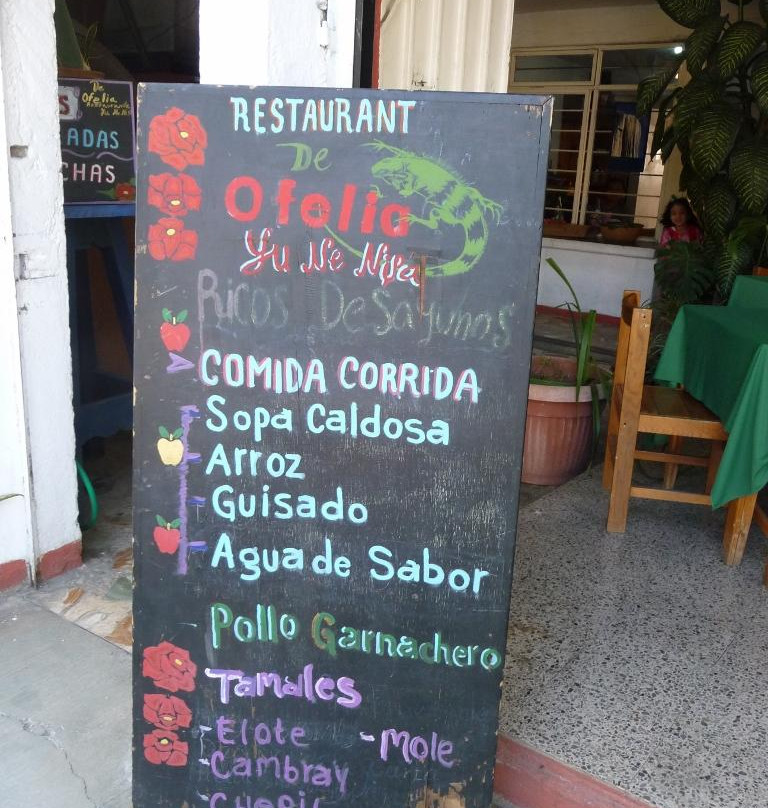 De
Ofelia
ADAS
CHAS
RESTAURANT
De
Ofelia
Yu Ne Nisa
Ricos Desayunos
COMIDA CORRIDA
Sopa Caldosa
Arroz
Guisado
Agua de Sabor
Pollo Garnachero
Tamales
-Elote -Mole
-Cambray